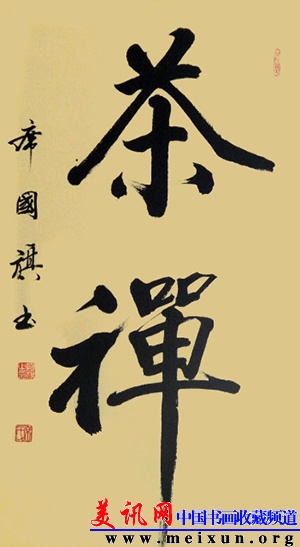 茶禪
席國旗书
美讯网 中国书画收藏频道
www.meixun.net